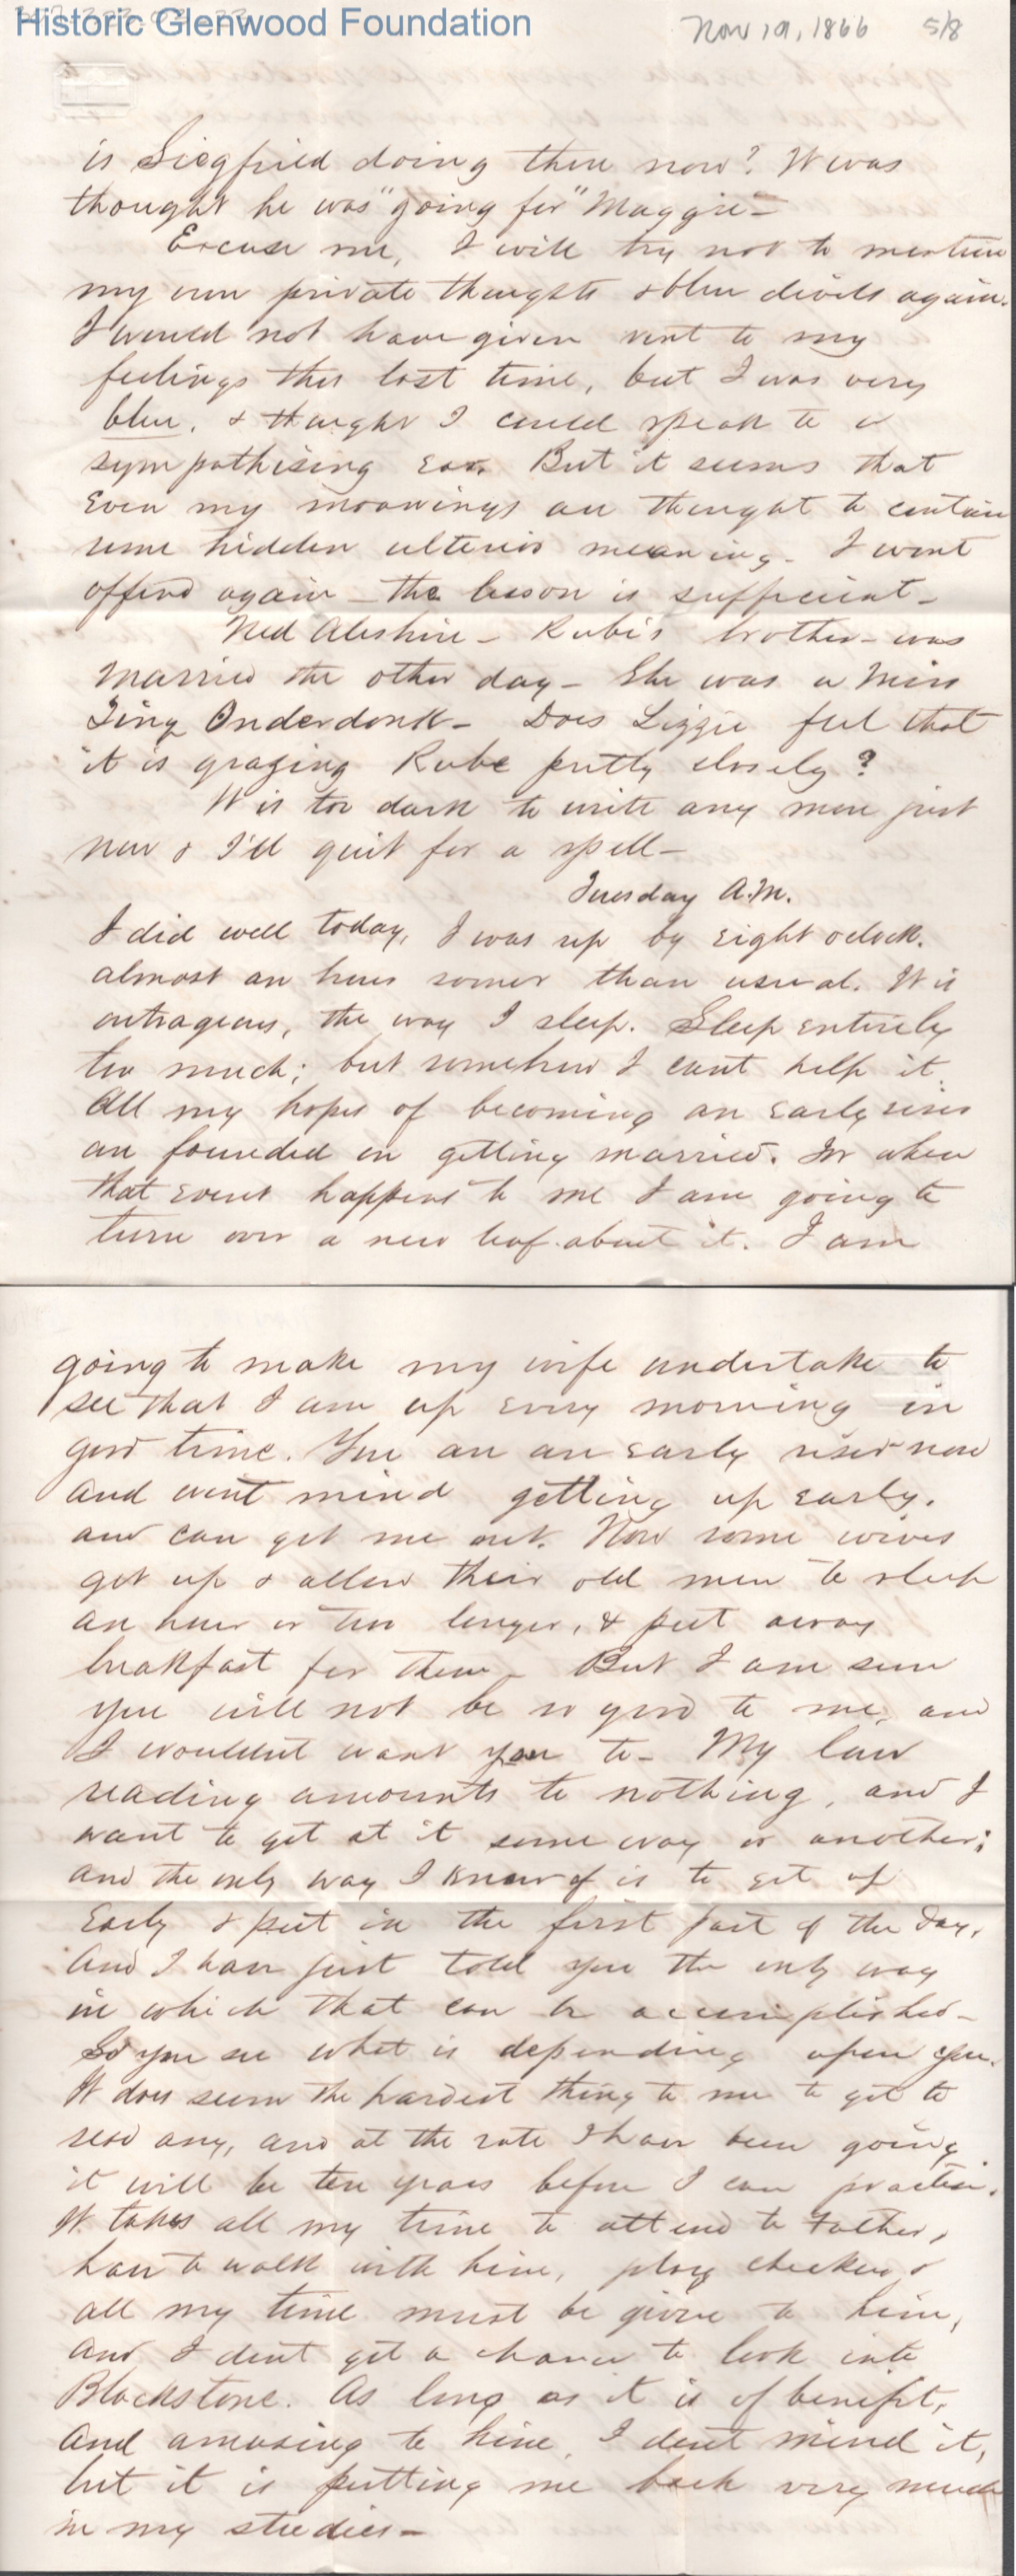 Historic Glenwood Foundation
Nov 19, 1866 5/8
is Siegfried doing there now? It was
thought he was "going for" Maggie—
Excuse me, I will try not to mention
my own private thoughts & blue devils again.
I would not have given vent to my
feelings this last time, but I was very
blue, & thought I could speak to a
sympathising ear. But it seems that
even my moanings are thought to contain
some hidden ulterior meaning. I wont
offend again — the lesson is sufficient—
Ned Aleshire — Rube's brother — was
married the other day — She was a Miss
Onderdonk — Does Lizzie feel that
it is grazing Rube pretty closely?
It is too dark to write any more just
now & I'll quit for a spell—
Tuesday A.M.
I did well today, I was up by eight oclock.
almost an hour sooner than usual. It is
outrageous, the way I sleep. Sleep entirely
too much; but somehow I cant help it.
All my hopes of becoming an early riser
are founded on getting married. For when
that event happens to me I am going to
turn over a new leaf about it. I am
going to make my wife undertake to
see that I am up every morning in
good time. You are an early riser now
and wont mind getting up early.
and can get me out. Now some wives
get up & allow their old men to sleep
an hour or two longer, & put away
breakfast for them — But I am sure
you will not be so good to me, and
I wouldnt want you to — My law
reading amounts to nothing, and I
want to get at it some way or another;
and the only way I know of is to get up
Early & put in the first part of the day,
And I have just told you the only way
in which that can be accomplished—
So you see what is depending upon you.
It does seem the hardest thing to me to get to
read any, and at the rate I have been going
it will be ten years before I can practice.
It takes all my time to attend to Father,
have to walk with him, play checkers &
all my time must be given to him,
and I dont get a chance to look into
Blackstone. As long as it is of benefit,
and amusing to him, I dont mind it,
but it is putting me back very much
in my studies—